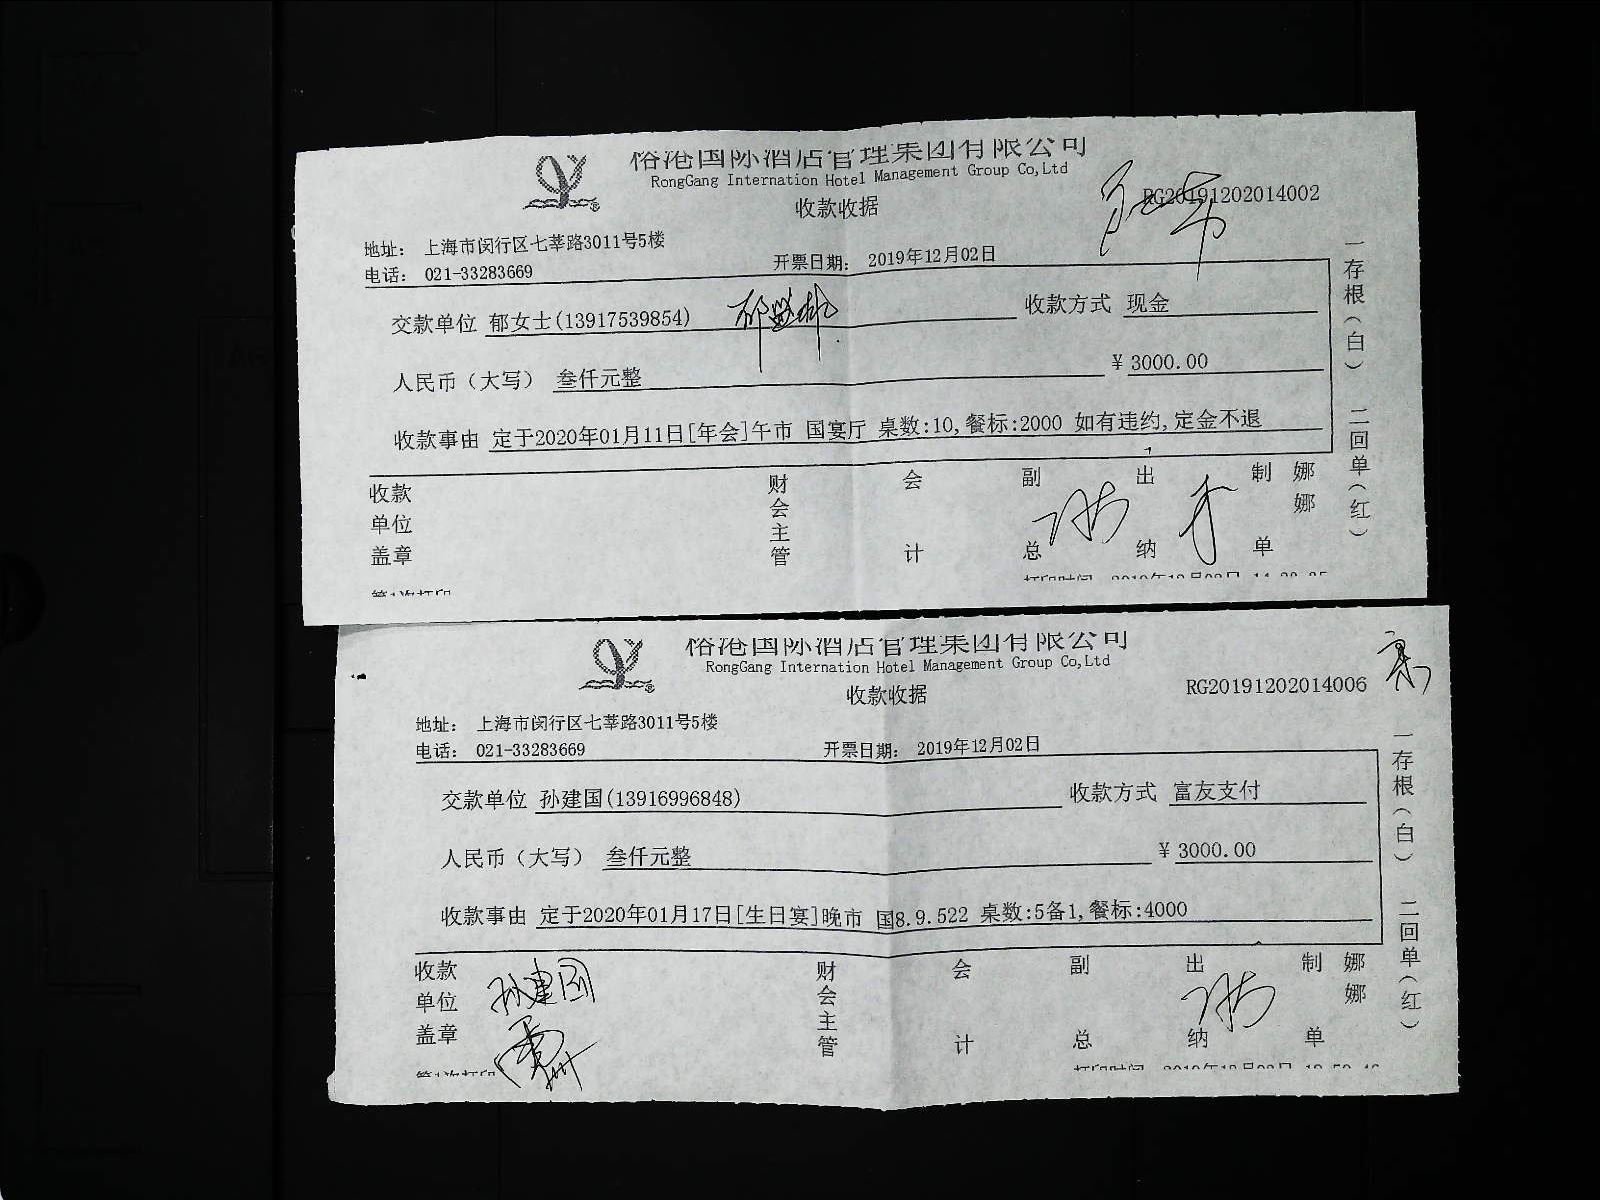 裕港国际酒店管理集团有限公司
RongGang Internation Hotel Management Group Co,Ltd
收款收据
RG20191202014002
地址: 上海市闵行区七莘路3011号5楼
电话: 021-33283669
开票日期: 2019年12月02日
交款单位 郁女士(13917539854)
收款方式 现金
人民币（大写） 叁仟元整
¥ 3000.00
收款事由 定于2020年01月11日[年会]午市 国宴厅 桌数:10,餐标:2000 如有违约,定金不退
收款单位盖章
财会主管
会计
副总
出纳
制单
娜娜
一存根（白） 二回单（红）
第1次打印
裕港国际酒店管理集团有限公司
RongGang Internation Hotel Management Group Co,Ltd
收款收据
RG20191202014006
地址: 上海市闵行区七莘路3011号5楼
电话: 021-33283669
开票日期: 2019年12月02日
交款单位 孙建国(13916996848)
收款方式 富友支付
人民币（大写） 叁仟元整
¥ 3000.00
收款事由 定于2020年01月17日[生日宴]晚市 国8.9.522 桌数:5备1,餐标:4000
收款单位盖章
孙建国
财会主管
会计
副总
出纳
制单
娜娜
一存根（白） 二回单（红）
第1次打印